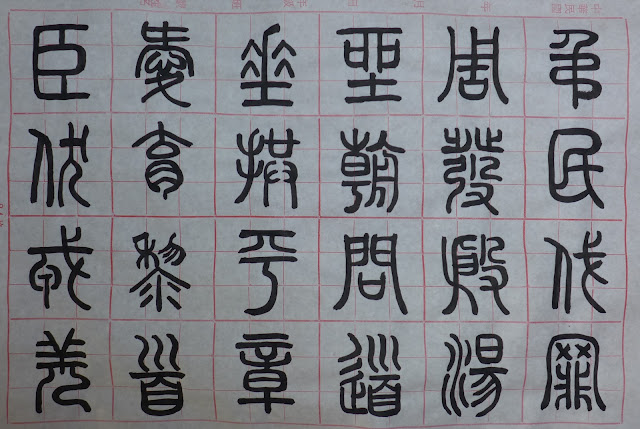 弔民伐罪
周發殷湯
坐朝問道
垂拱平章
愛育黎首
臣伏戎羌